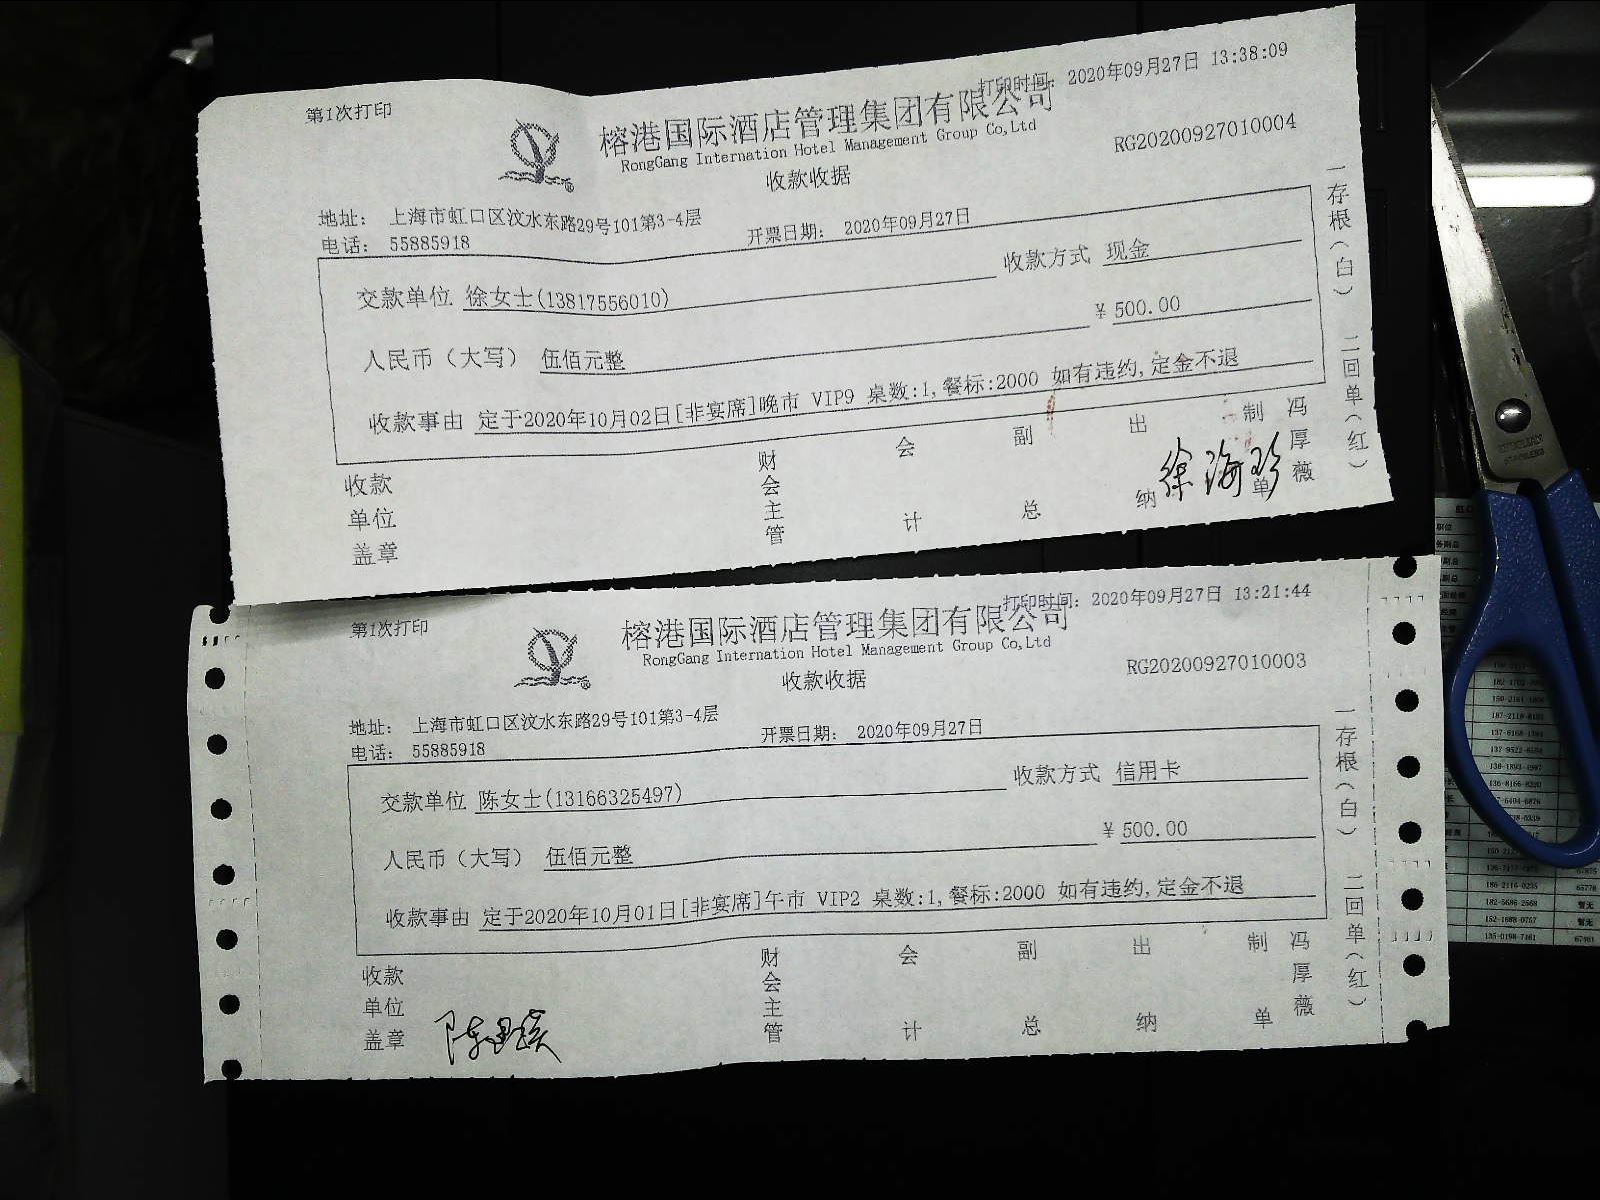 第1次打印
打印时间: 2020年09月27日 13:38:09
榕港国际酒店管理集团有限公司
RongGang Internation Hotel Management Group Co,Ltd
RG20200927010004
收款收据
地址: 上海市虹口区汶水东路29号101第3-4层
电话: 55885918
开票日期: 2020年09月27日
交款单位 徐女士(13817556010)
收款方式 现金
人民币（大写） 伍佰元整
¥ 500.00
收款事由 定于2020年10月02日[非宴席]晚市 VIP9 桌数:1,餐标:2000 如有违约,定金不退
收款单位盖章
财会主管
会计
副总
出纳
徐海珍
制单
冯厚薇
一存根(白) 二回单(红)
第1次打印
打印时间: 2020年09月27日 13:21:44
榕港国际酒店管理集团有限公司
RongGang Internation Hotel Management Group Co,Ltd
RG20200927010003
收款收据
地址: 上海市虹口区汶水东路29号101第3-4层
电话: 55885918
开票日期: 2020年09月27日
交款单位 陈女士(13166325497)
收款方式 信用卡
人民币（大写） 伍佰元整
¥ 500.00
收款事由 定于2020年10月01日[非宴席]午市 VIP2 桌数:1,餐标:2000 如有违约,定金不退
收款单位盖章
财会主管
会计
副总
出纳
制单
冯厚薇
一存根(白) 二回单(红)